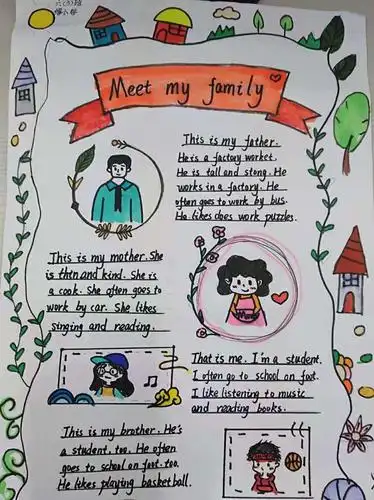 Meet my family
This is my father.
He is a factory worket.
He is tall and stong. He
works in a factory. He
often goes to work by bus.
He likes does work puzzles.
This is my mother. She
is thtn and kind. She is
a cook. She often goes to
work by car. She likes
singing and reading.
That is me. I'm a student.
I often go to school on foot.
I like listening to music
and reading books.
This is my brother. He's
a student, too. He often
goes to school on foot too.
He likes playing basketball.